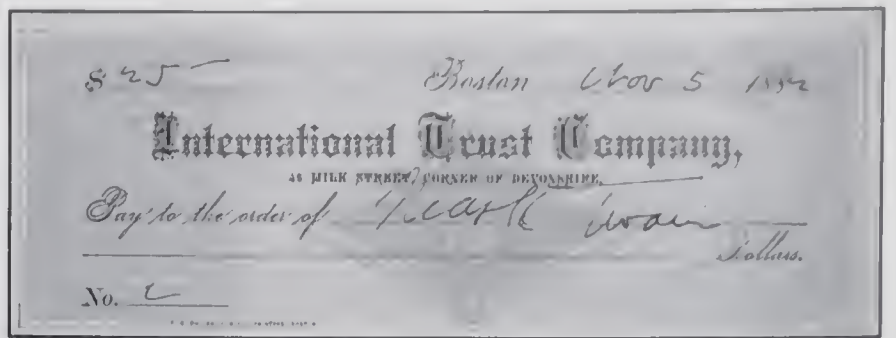 $ 25 Boston Nov 5 1882
International Trust Company,
45 MILK STREET, CORNER OF DEVONSHIRE.
Pay to the order of Mark Twain
Dollars.
No. 2